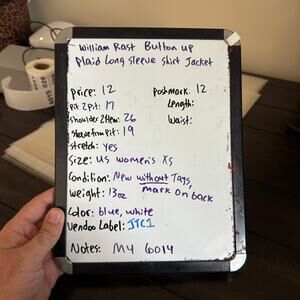 William Rast Button up
Plaid Long sleeve shirt Jacket
price: 12
poshmark: 12
pit 2 pit: 17
Length:
shoulder 2 Hem: 26
Waist:
sleeve from pit: 19
stretch: yes
Size: US women's XS
Condition: New without Tags,
mark on back
weight: 13oz
Color: blue, white
Vendoo Label: JTC1
Notes: MY 6014